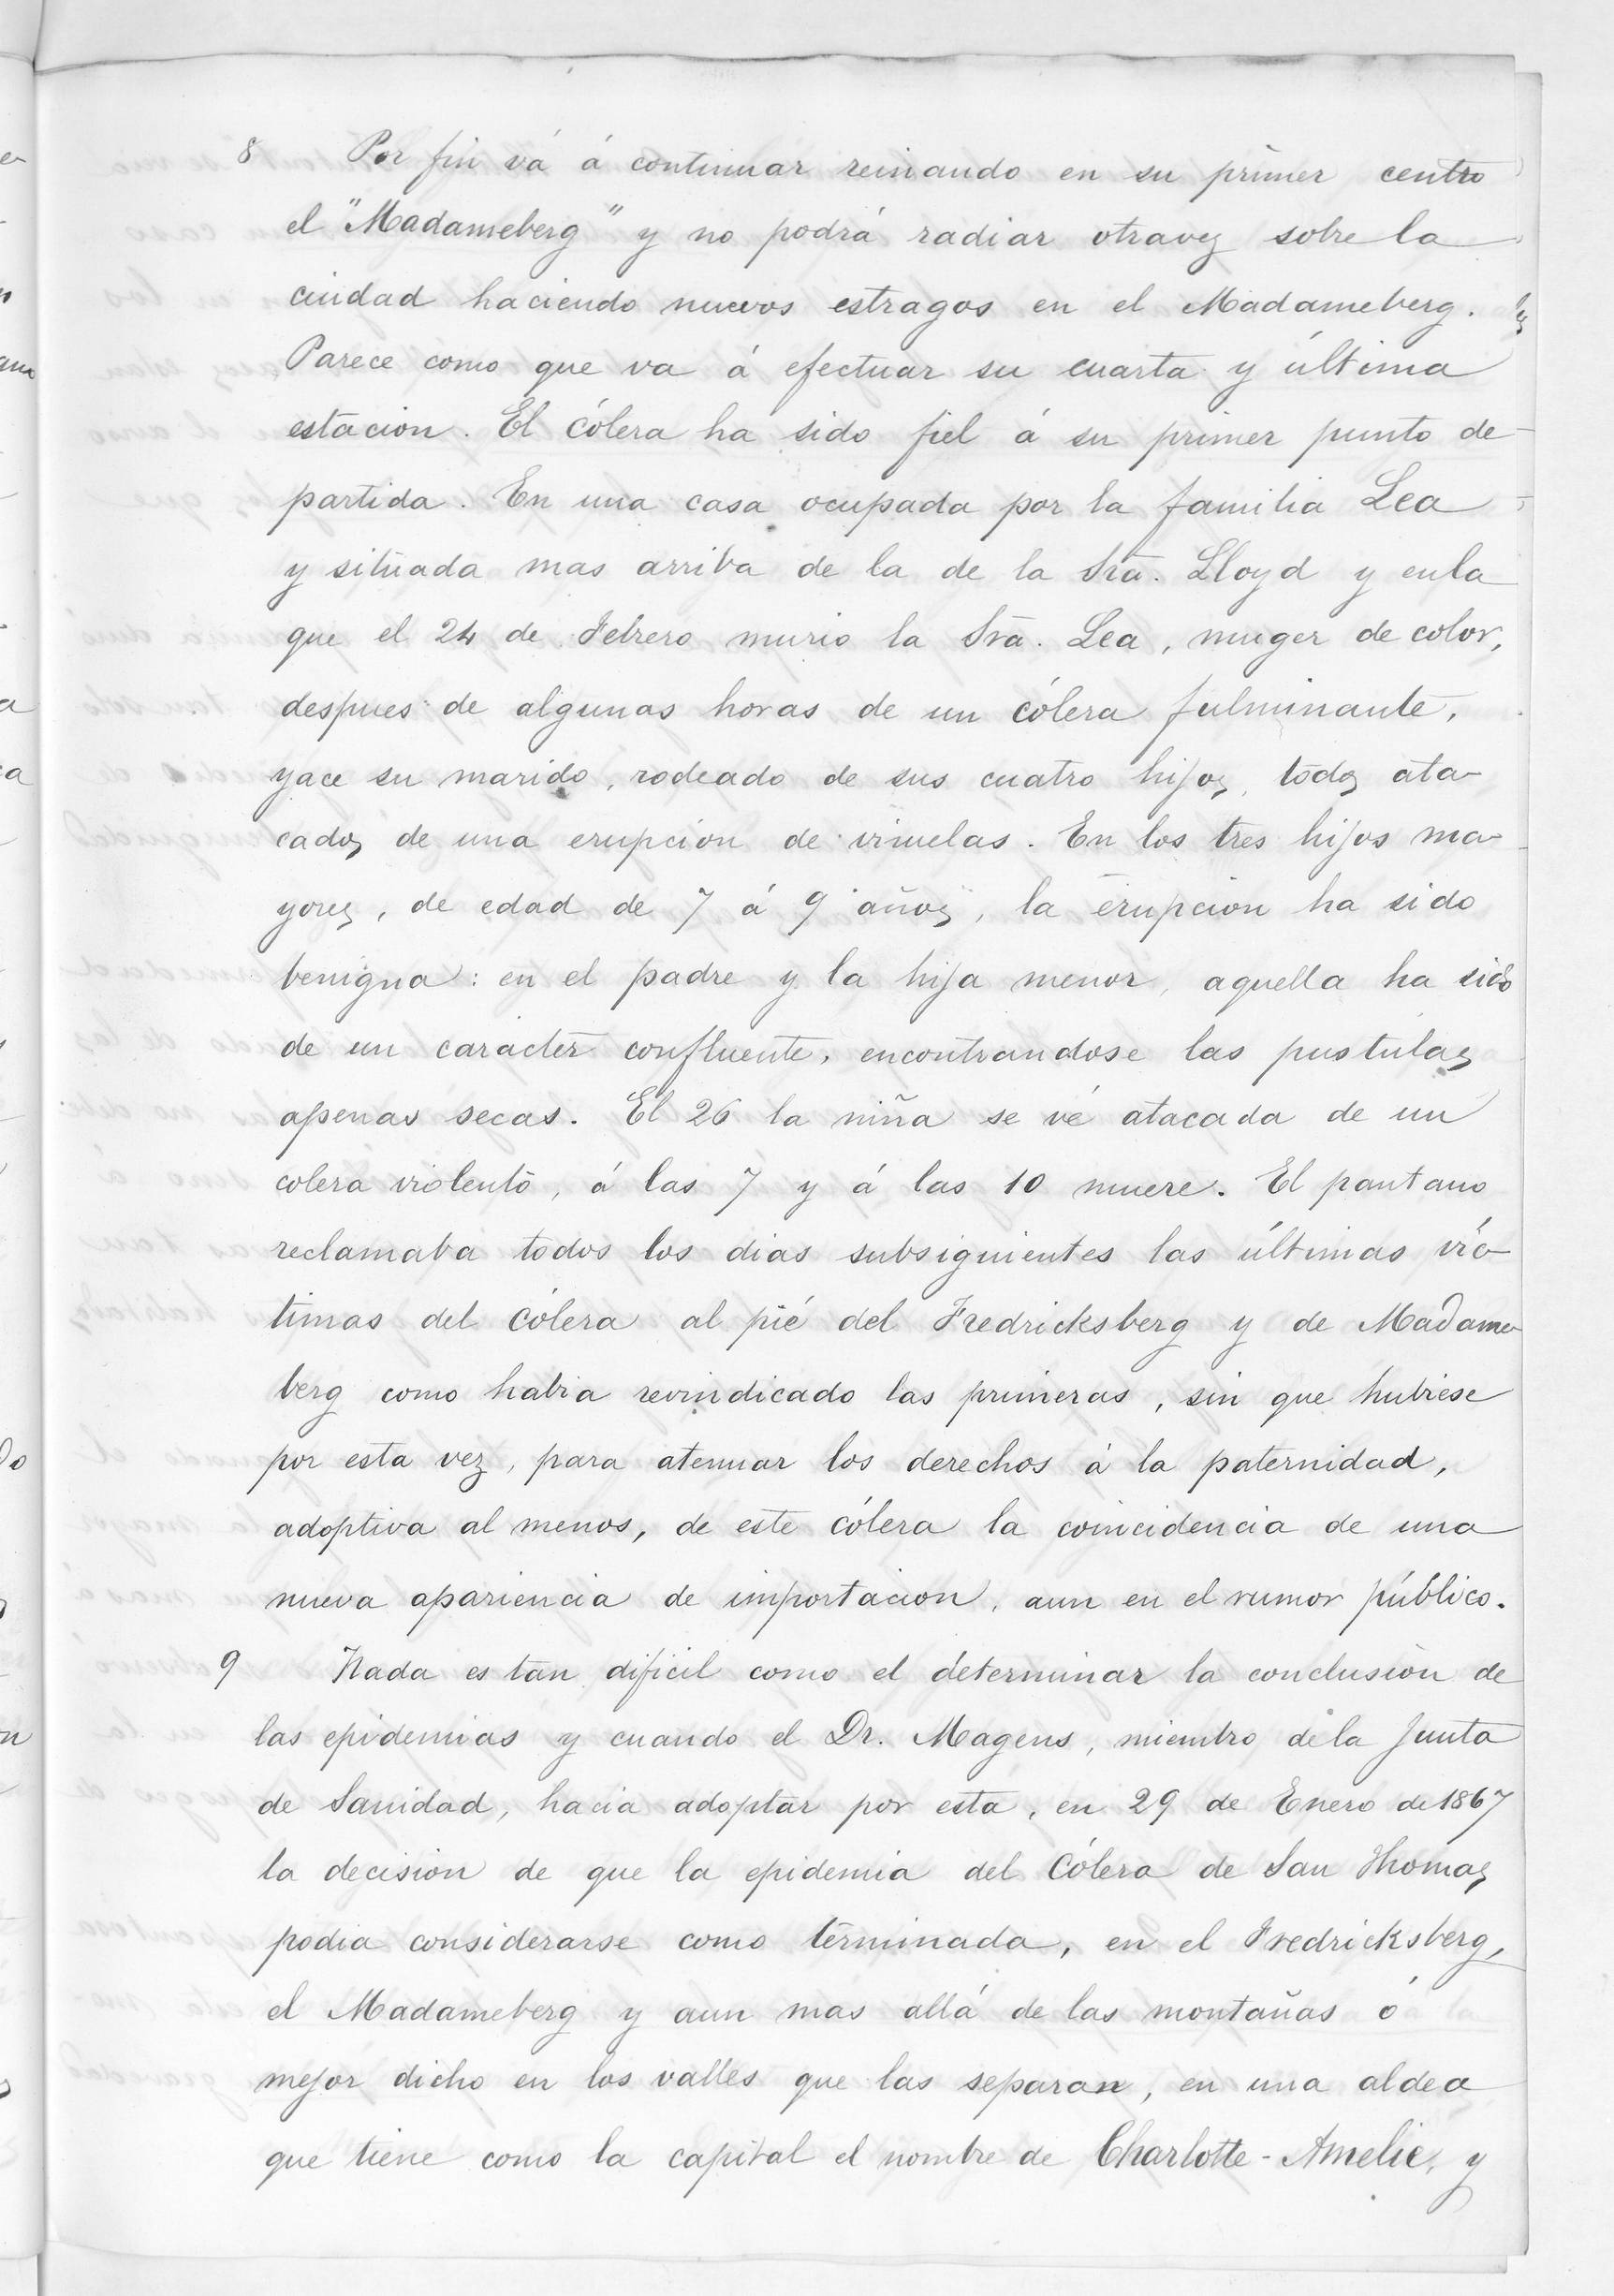 8 Por fin vá á continuar reinando en su primer centro
el "Madameberg" y no podrá radiar otravez sobre la
ciudad haciendo nuevos estragos en el Madameberg.
Parece como que va á efectuar su cuarta y última
estacion. El cólera ha sido fiel á su primer punto de
partida. En una casa ocupada por la familia Lea
y situada mas arriba de la de la Sra. Lloyd y en la
que el 24 de Febrero murio la Sra. Lea, muger de color,
despues de algunas horas de un cólera fulminante,
yace su marido, rodeado de sus cuatro hijos, todos ata-
cados de una erupcion de viruelas. En los tres hijos ma-
yores, de edad de 7 á 9 años, la erupcion ha sido
benigna: en el padre y la hija menor, aquella ha sido
de un caracter confluente, encontrandose las pustulas
apenas secas. El 26 la niña se vé atacada de un
colera violento, á las 7 y á las 10 muere. El pantano
reclamaba todos los dias subsiguientes las últimas víc-
timas del cólera al pié del Fredricksberg y de Madame-
berg como habia revindicado las primeras, sin que hubiese
por esta vez, para atenuar los derechos á la paternidad,
adoptiva al menos, de este cólera la coincidencia de una
nueva apariencia de importacion, aun en el rumor público.
9 Nada es tan dificil como el determinar la conclusion de
las epidemias y cuando el Dr. Magens, miembro de la Junta
de Sanidad, hacia adoptar por esta, en 29 de Enero de 1867
la decision de que la epidemia del Cólera de San Thomas
podia considerarse como terminada, en el Fredricksberg,
el Madameberg y aun mas allá de las montañas ó
mejor dicho en los valles que las separan, en una aldea
que tiene como la capital el nombre de Charlotte-Amelie, y